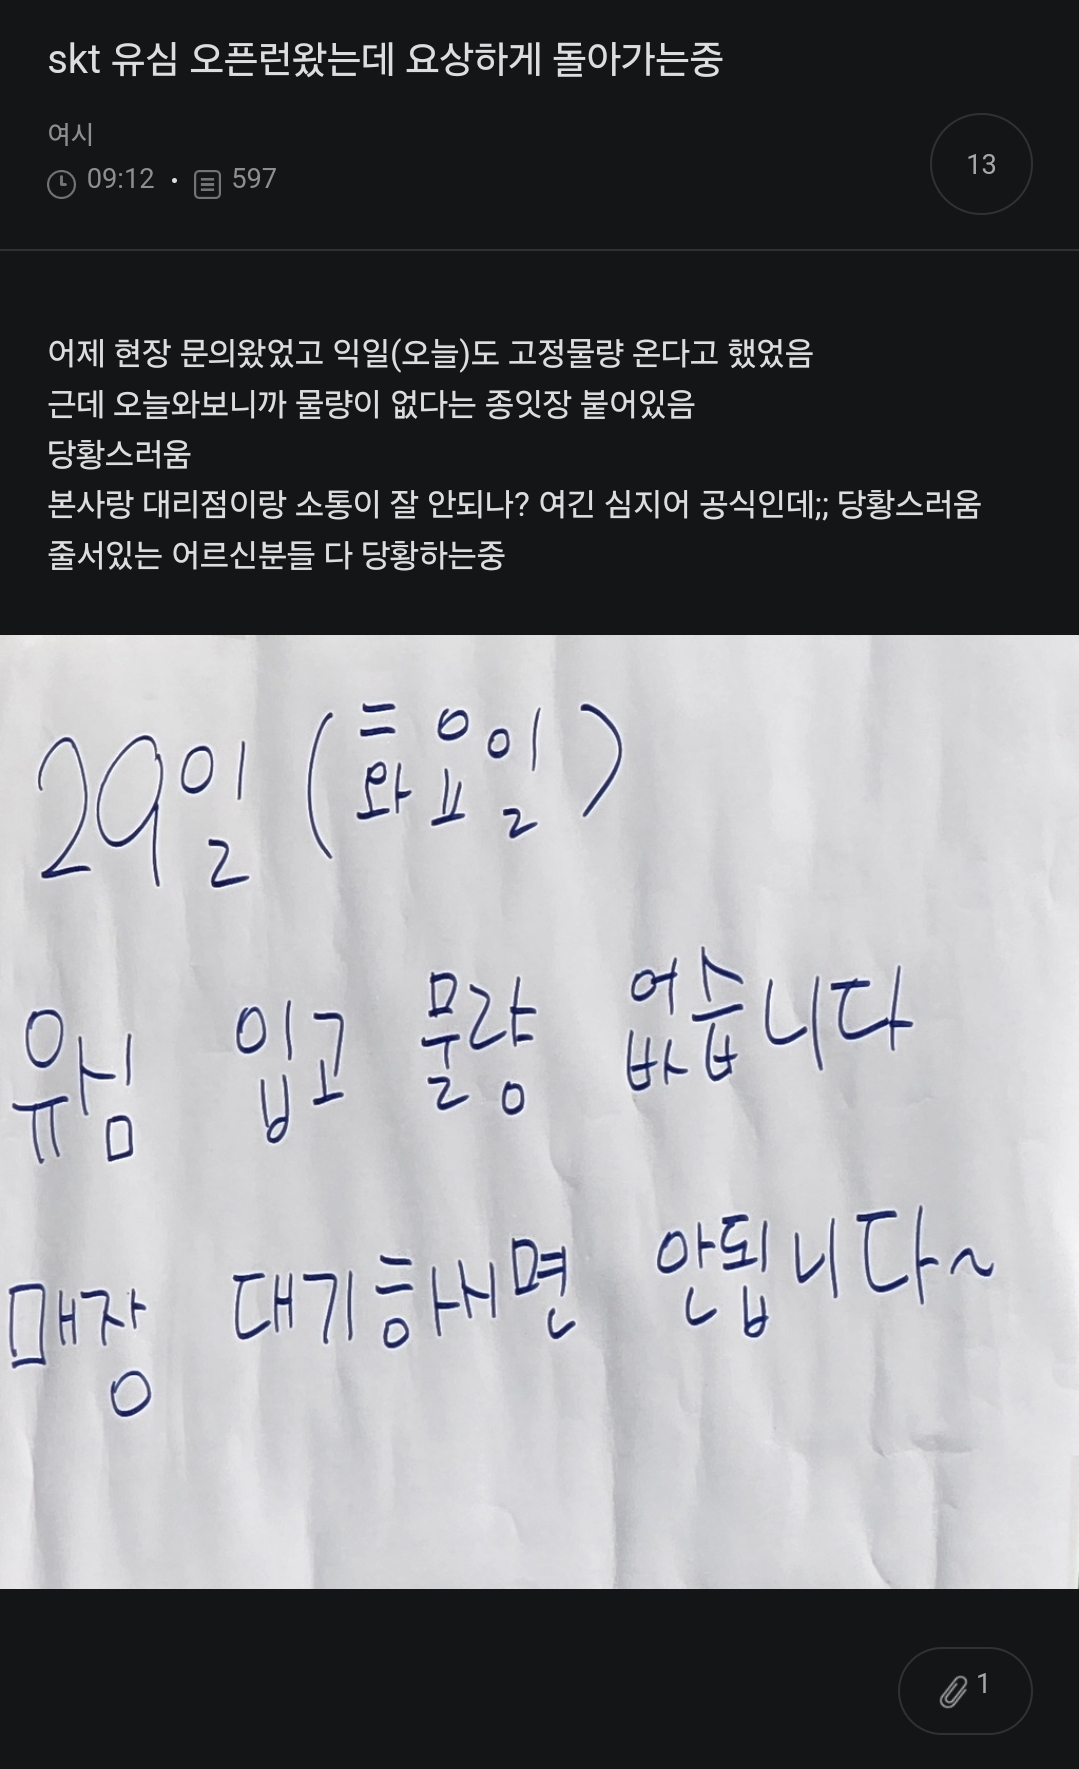 skt 유심 오픈런왔는데 요상하게 돌아가는중
여시
09:12 · 597
13
어제 현장 문의왔었고 익일(오늘)도 고정물량 온다고 했었음
근데 오늘와보니까 물량이 없다는 종잇장 붙어있음
당황스러움
본사랑 대리점이랑 소통이 잘 안되나? 여긴 심지어 공식인데;; 당황스러움
줄서있는 어르신분들 다 당황하는중
29일 (화요일)
유심 입고 물량 없습니다
매장 대기하시면 안됩니다~
1